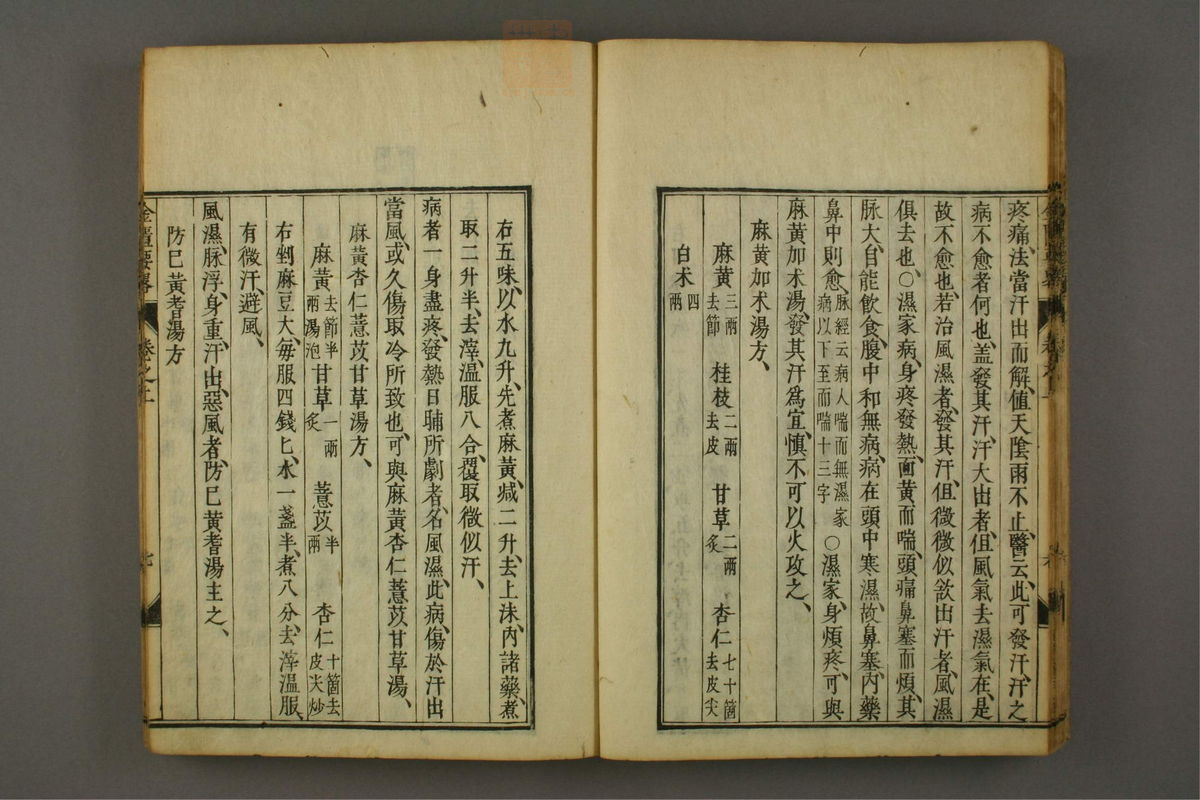 疼痛、法當汗出而解、値天陰雨不止、醫云、此可發汗、汗之
病不愈者何也、蓋發其汗、汗大出者、但風氣去濕氣在、是
故不愈也、若治風濕者、發其汗、但微微似欲出汗者、風濕
俱去也、○濕家病、身疼發熱、面黃而喘、頭痛鼻塞而煩、其
脉大、自能飲食、腹中和無病、病在頭中寒濕、故鼻塞、內藥
鼻中則愈、脉經云病人喘而無濕家病以下至而喘十三字○濕家、身煩疼、可與
麻黃加朮湯、發其汗爲宜、愼不可以火攻之、
麻黃加朮湯方、
麻黃三兩去節 桂枝二兩去皮 甘草二兩炙 杏仁七十箇去皮尖
白朮四兩
右五味、以水九升、先煮麻黃、減二升、去上沫、內諸藥、煮
取二升半、去滓、温服八合、覆取微似汗、
病者一身盡疼、發熱日晡所劇者、名風濕、此病傷於汗出
當風、或久傷取冷所致也、可與麻黃杏仁薏苡甘草湯、
麻黃杏仁薏苡甘草湯方、
麻黃去節半兩湯泡 甘草一兩炙 薏苡半兩 杏仁十箇去皮尖炒
右剉麻豆大、每服四錢匕、水一盞半、煮八分、去滓温服、
有微汗、避風、
風濕、脉浮、身重、汗出、惡風者、防已黃耆湯主之、
防已黃耆湯方
金匱要畧 卷之上 七